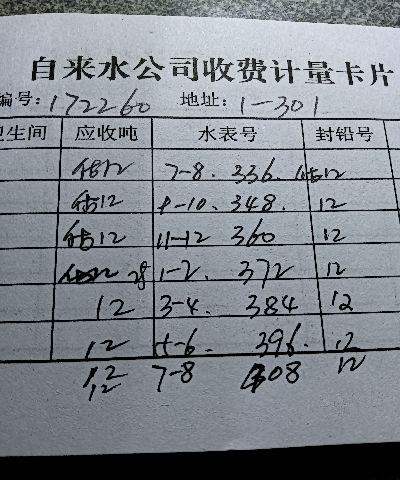 自来水公司收费计量卡片
编号:172260 地址:1-301
卫生间 应收吨 水表号 封铅号
估12 7-8. 336. 估12
估12 9-10. 348. 12
估12 11-12 360 12
估12 1-2. 372 12
12 3-4. 384 12
12 5-6. 396. 12
12 12 7-8 408 12